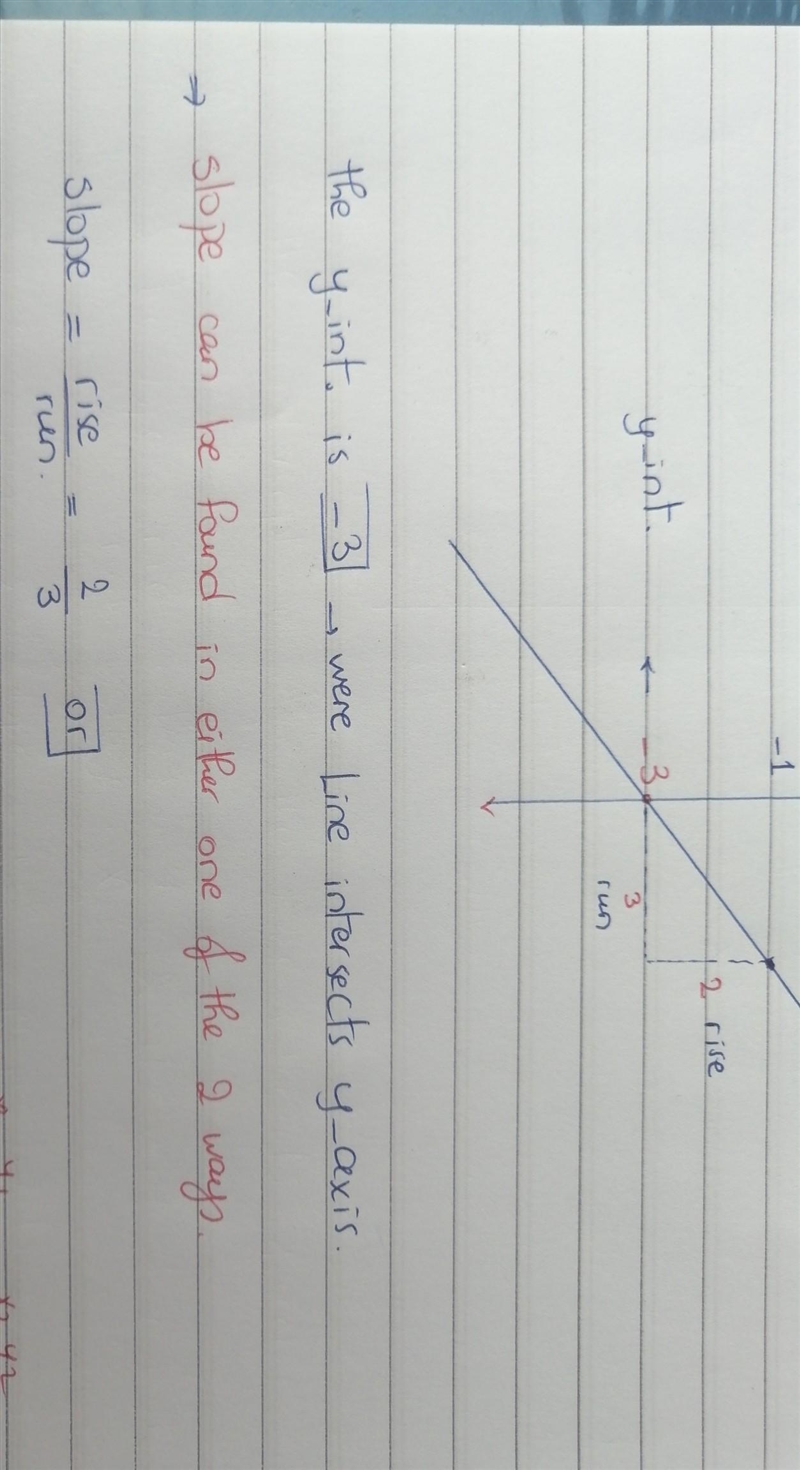 -1
2 rise
y-int. ← -3
3
run
the y-int. is -3 → were Line intersects y-axis.
→ slope can be found in either one of the 2 ways.
slope = rise/run. = 2/3 or